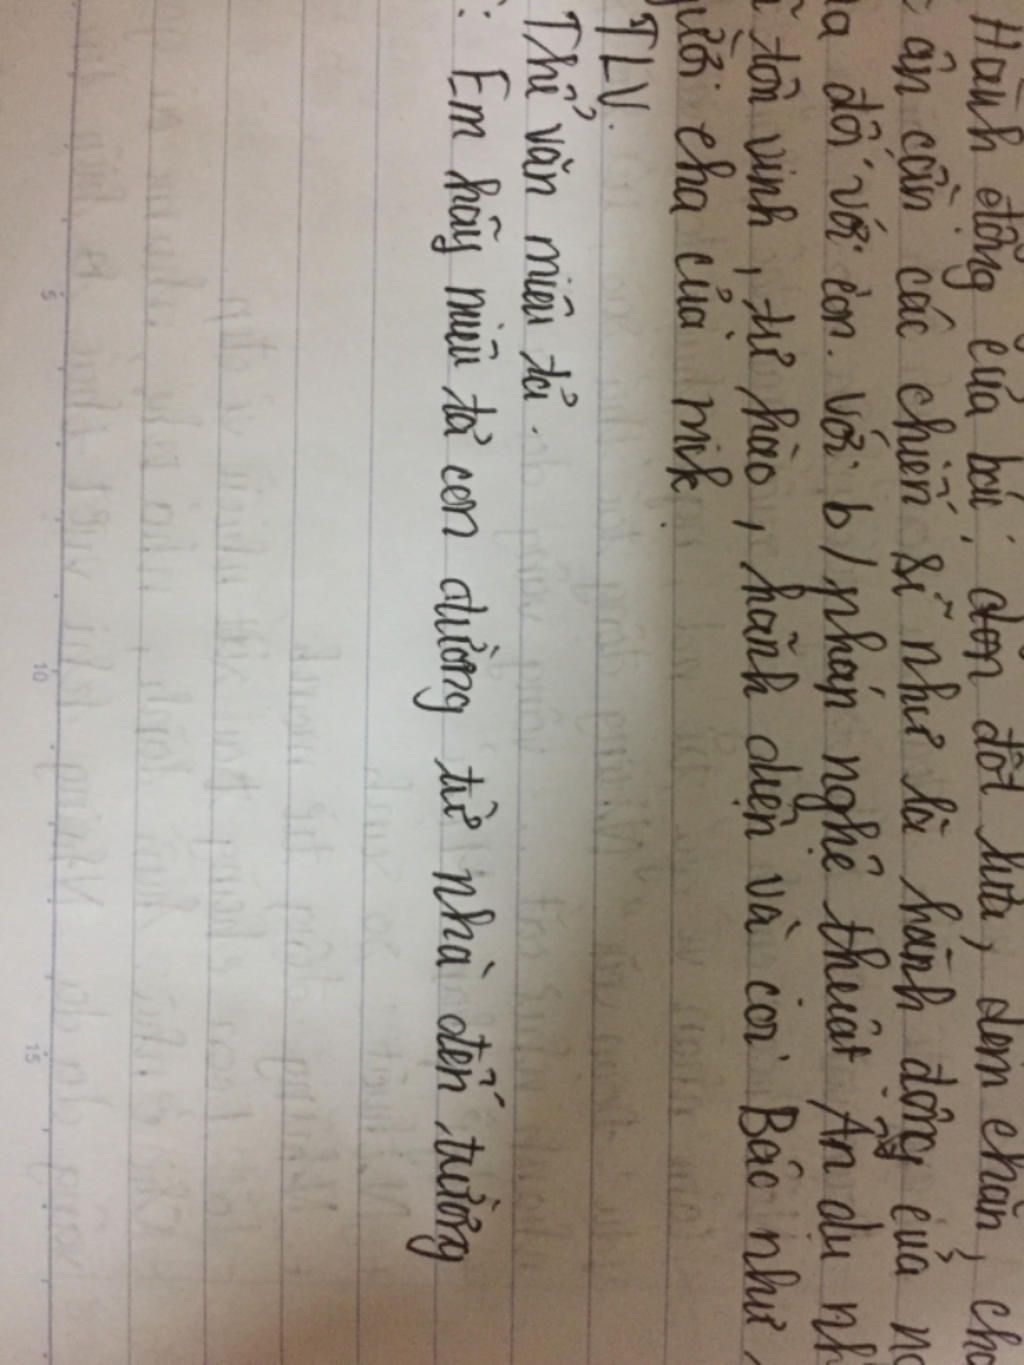 Hành động của bác, đơn đốt lửa, dém chăn,
ân cần các chiến sĩ như là hành động của
đối với con. Với b/pháp nghệ thuật Ẩn dụ
tôn vinh, tự hào, hãnh diện và coi Bác như
cha của mik.
TLV.
Thể văn miêu tả.
: Em hãy miêu tả con đường từ nhà đến trường
5
10
15